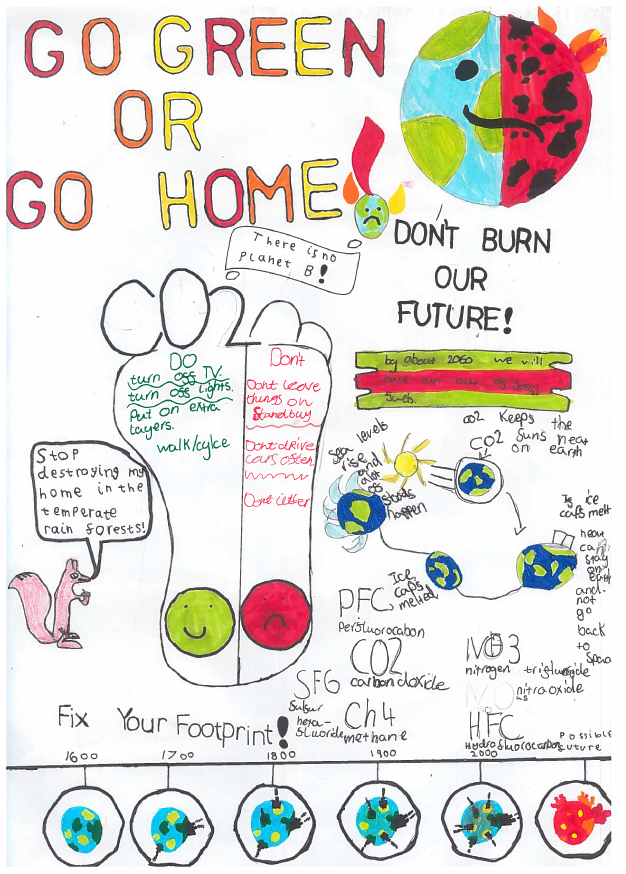 GO GREEN
OR
GO HOME!
There is no
Planet B!
DON'T BURN
OUR
FUTURE!
CO2
DO
turn off TV.
turn off Lights.
Put on extra
layers.
walk/cylce
Don't
Dont leave
things on
Standbuy
Dont drive
cars often
Dont litter
by about 2060 we will
have run out of fossil
fuels.
CO2 Keeps the
Sun's heat
on earth
CO2
Sea levels
rise
and
floods
happen
If ice
caps melt
heat
can
stay
on
earth
and
not
go
back
to
Space
Ice
caps
melted
Stop
destroying my
home in the
temperate
rain forests!
PFC
Perifluorocabon
CO2
carbon dioxide
SF6
Sulfur
hexa-
fluoride
Ch4
methane
3
nitrogen trisfluoride
nitra oxide
HFC
Hydrofluorocarbons
Fix Your Footprint!
Possible
future
1600 1700 1800 1900 2000